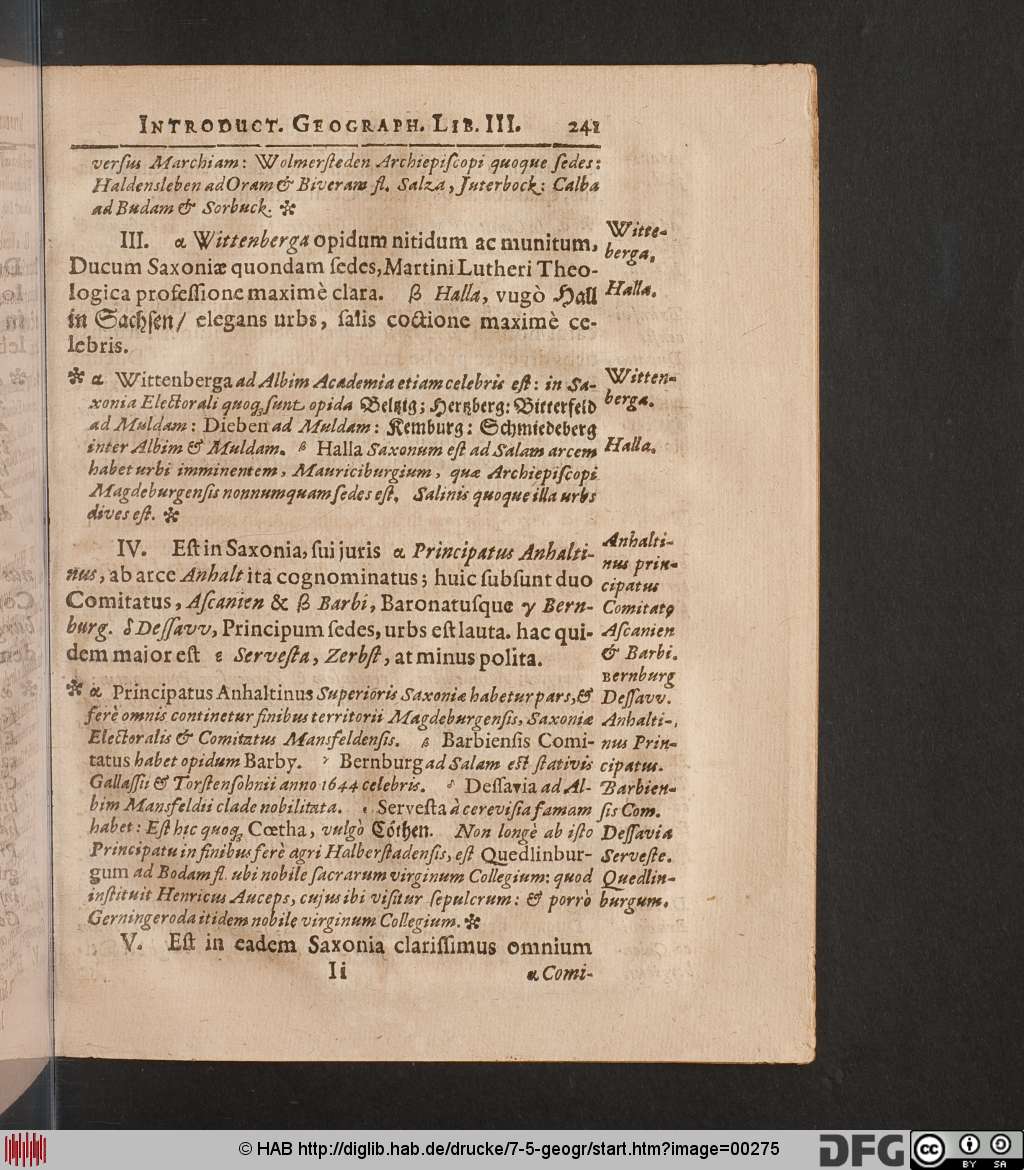 INTRODUCT. GEOGRAPH. LIB. III. 241
verſus Marchiam: Wolmerſteden Archiepiſcopi quoque ſedes:
Haldensleben ad Oram & Biveram fl. Salza, Juterbock: Calba
ad Budam & Sorbuck. ✲
III. α Wittenberga opidum nitidum ac munitum,
Ducum Saxoniæ quondam ſedes, Martini Lutheri Theo-
logica profeſſione maximè clara. β Halla, vugò Hall
in Sachſen/ elegans urbs, ſalis coctione maximè ce-
lebris.
Witte-
berga,
Halla.
✲ α Wittenberga ad Albim Academia etiam celebris eſt: in Sa-
xonia Electorali quoq; ſunt opida Beltzig; Hertzberg: Bitterfeld
ad Muldam: Dieben ad Muldam: Kemburg: Schmiedeberg
inter Albim & Muldam. β Halla Saxonum eſt ad Salam arcem
habet urbi imminentem, Mauriciburgium, quæ Archiepiſcopi
Magdeburgenſis nonnumquam ſedes eſt. Salinis quoque illa urbs
dives eſt. ✲
Witten-
berga.
Halla.
IV. Eſt in Saxonia, ſui juris α Principatus Anhalti-
nus, ab arce Anhalt ita cognominatus; huic ſubſunt duo
Comitatus, Aſcanien & β Barbi, Baronatuſque γ Bern-
burg. δ Deſſavv, Principum ſedes, urbs eſt lauta. hac qui-
dem major eſt ε Serveſta, Zerbſt, at minus polita.
Anhalti-
nus prin-
cipatus
Comitatꝰ
Aſcanien
& Barbi.
Bernburg
Deſſavv.
✲ α Principatus Anhaltinus Superioris Saxoniæ habetur pars, &
ferè omnis continetur finibus territorii Magdeburgenſis, Saxoniæ
Electoralis & Comitatus Mansfeldenſis. β Barbienſis Comi-
tatus habet opidum Barby. γ Bernburg ad Salam eſt ſtativis
Gallaſſii & Torſtenſohnii anno 1644 celebris. δ Deſſavia ad Al-
bim Mansfeldii clade nobilitata. ε Serveſta à cereviſia famam
habet: Eſt hic quoq; Cœtha, vulgò Cöthen. Non longè ab iſto
Principatu in finibus ferè agri Halberſtadenſis, eſt Quedlinbur-
gum ad Bodam fl. ubi nobile ſacrarum virginum Collegium: quod
inſtituit Henricus Auceps, cujus ibi viſitur ſepulcrum: & porrò
Gerningeroda itidem nobile virginum Collegium. ✲
Anhalti-
nus Prin-
cipatus.
Barbien-
ſis Com.
Deſſavia
Serveſte.
Quedlin-
burgum.
V. Eſt in eadem Saxonia clariſſimus omnium
Ii α Comi-
© HAB http://diglib.hab.de/drucke/7-5-geogr/start.htm?image=00275
DFG
cc BY SA